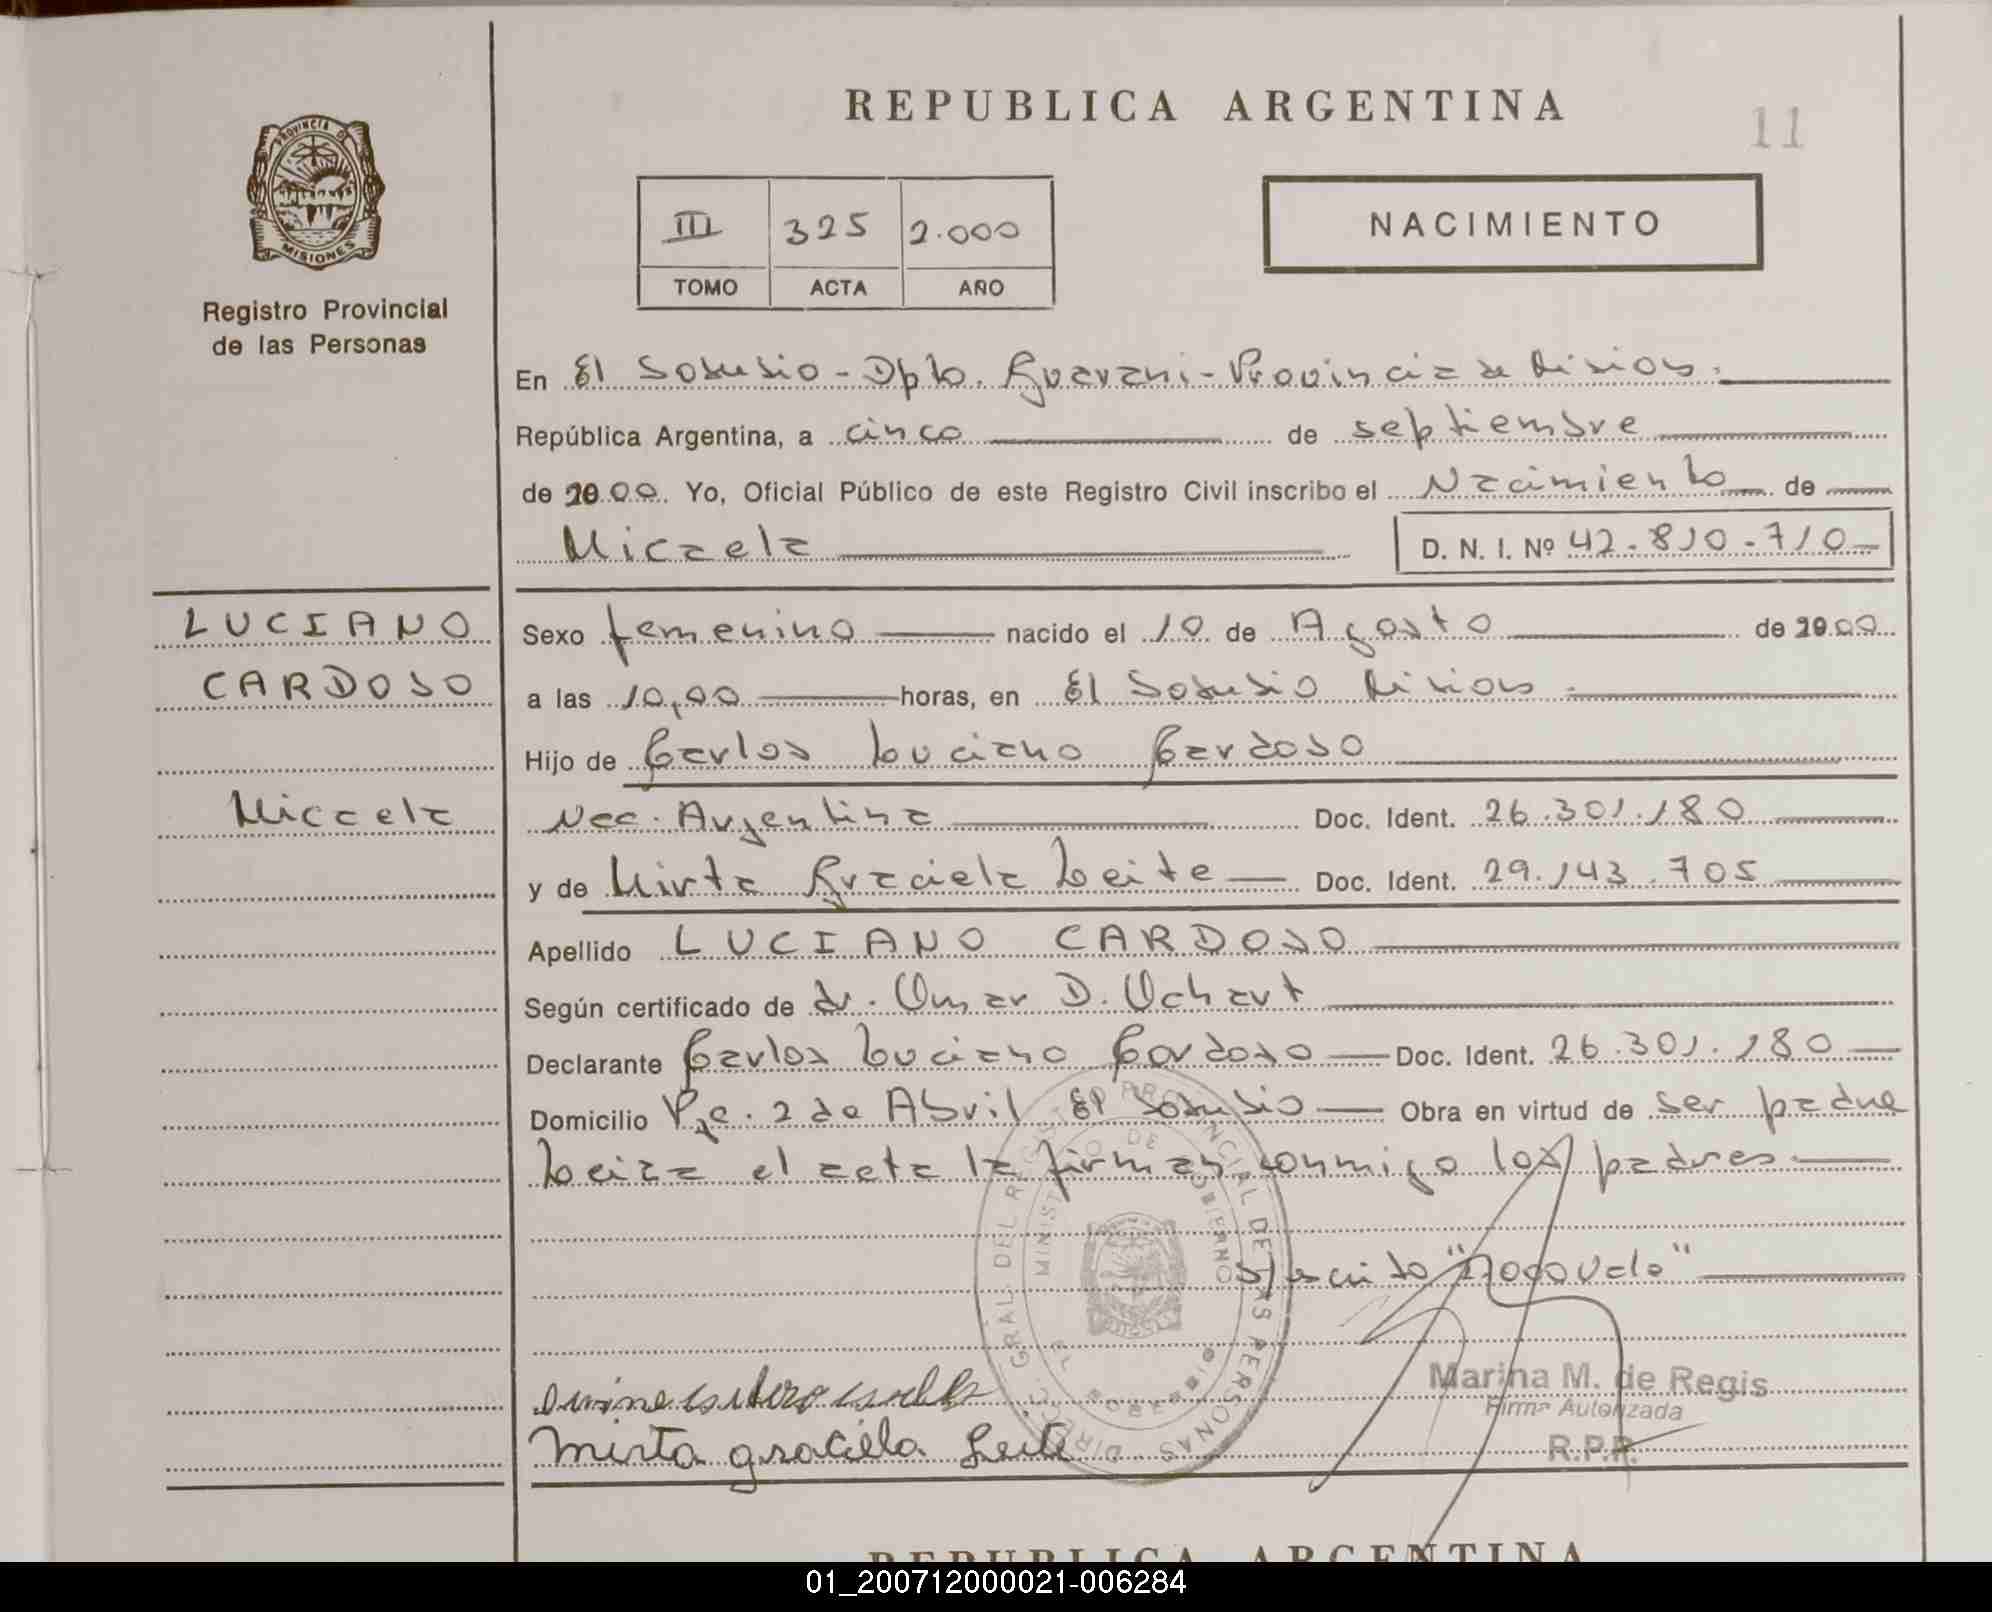 REPUBLICA ARGENTINA
11
PROVINCIA DE
MISIONES
Registro Provincial
de las Personas
III 325 2.000
TOMO ACTA AÑO
NACIMIENTO
En El Soberbio - Dpto. Guarani - Provincia de Misiones.
República Argentina, a cinco de septiembre
de 2000. Yo, Oficial Público de este Registro Civil inscribo el Nacimiento de
Micaela D. N. I. Nº 42.810.710
LUCIANO
CARDOSO
Micaela
Sexo femenino nacido el 10 de Agosto de 2000
a las 10,00 horas, en El Soberbio Misiones.
Hijo de Carlos Luciano Cardoso
Nac. Argentina Doc. Ident. 26.301.180
y de Mirta Graciela Leite Doc. Ident. 29.143.705
Apellido LUCIANO CARDOSO
Según certificado de dr. Omar D. Ochart
Declarante Carlos Luciano Cardoso Doc. Ident. 26.301.180
Domicilio Pje. 2 de Abril El Soberbio Obra en virtud de ser padre
Leida el acta la firman conmigo los padres
MINISTERIO DE GOBIERNO
PROVINCIAL DE LAS PERSONAS
EL SOBERBIO
Marina M. de Regis
Firma Autorizada
R.P.P.
Mirta graciela Leite
REPUBLICA ARGENTINA
01_200712000021-006284